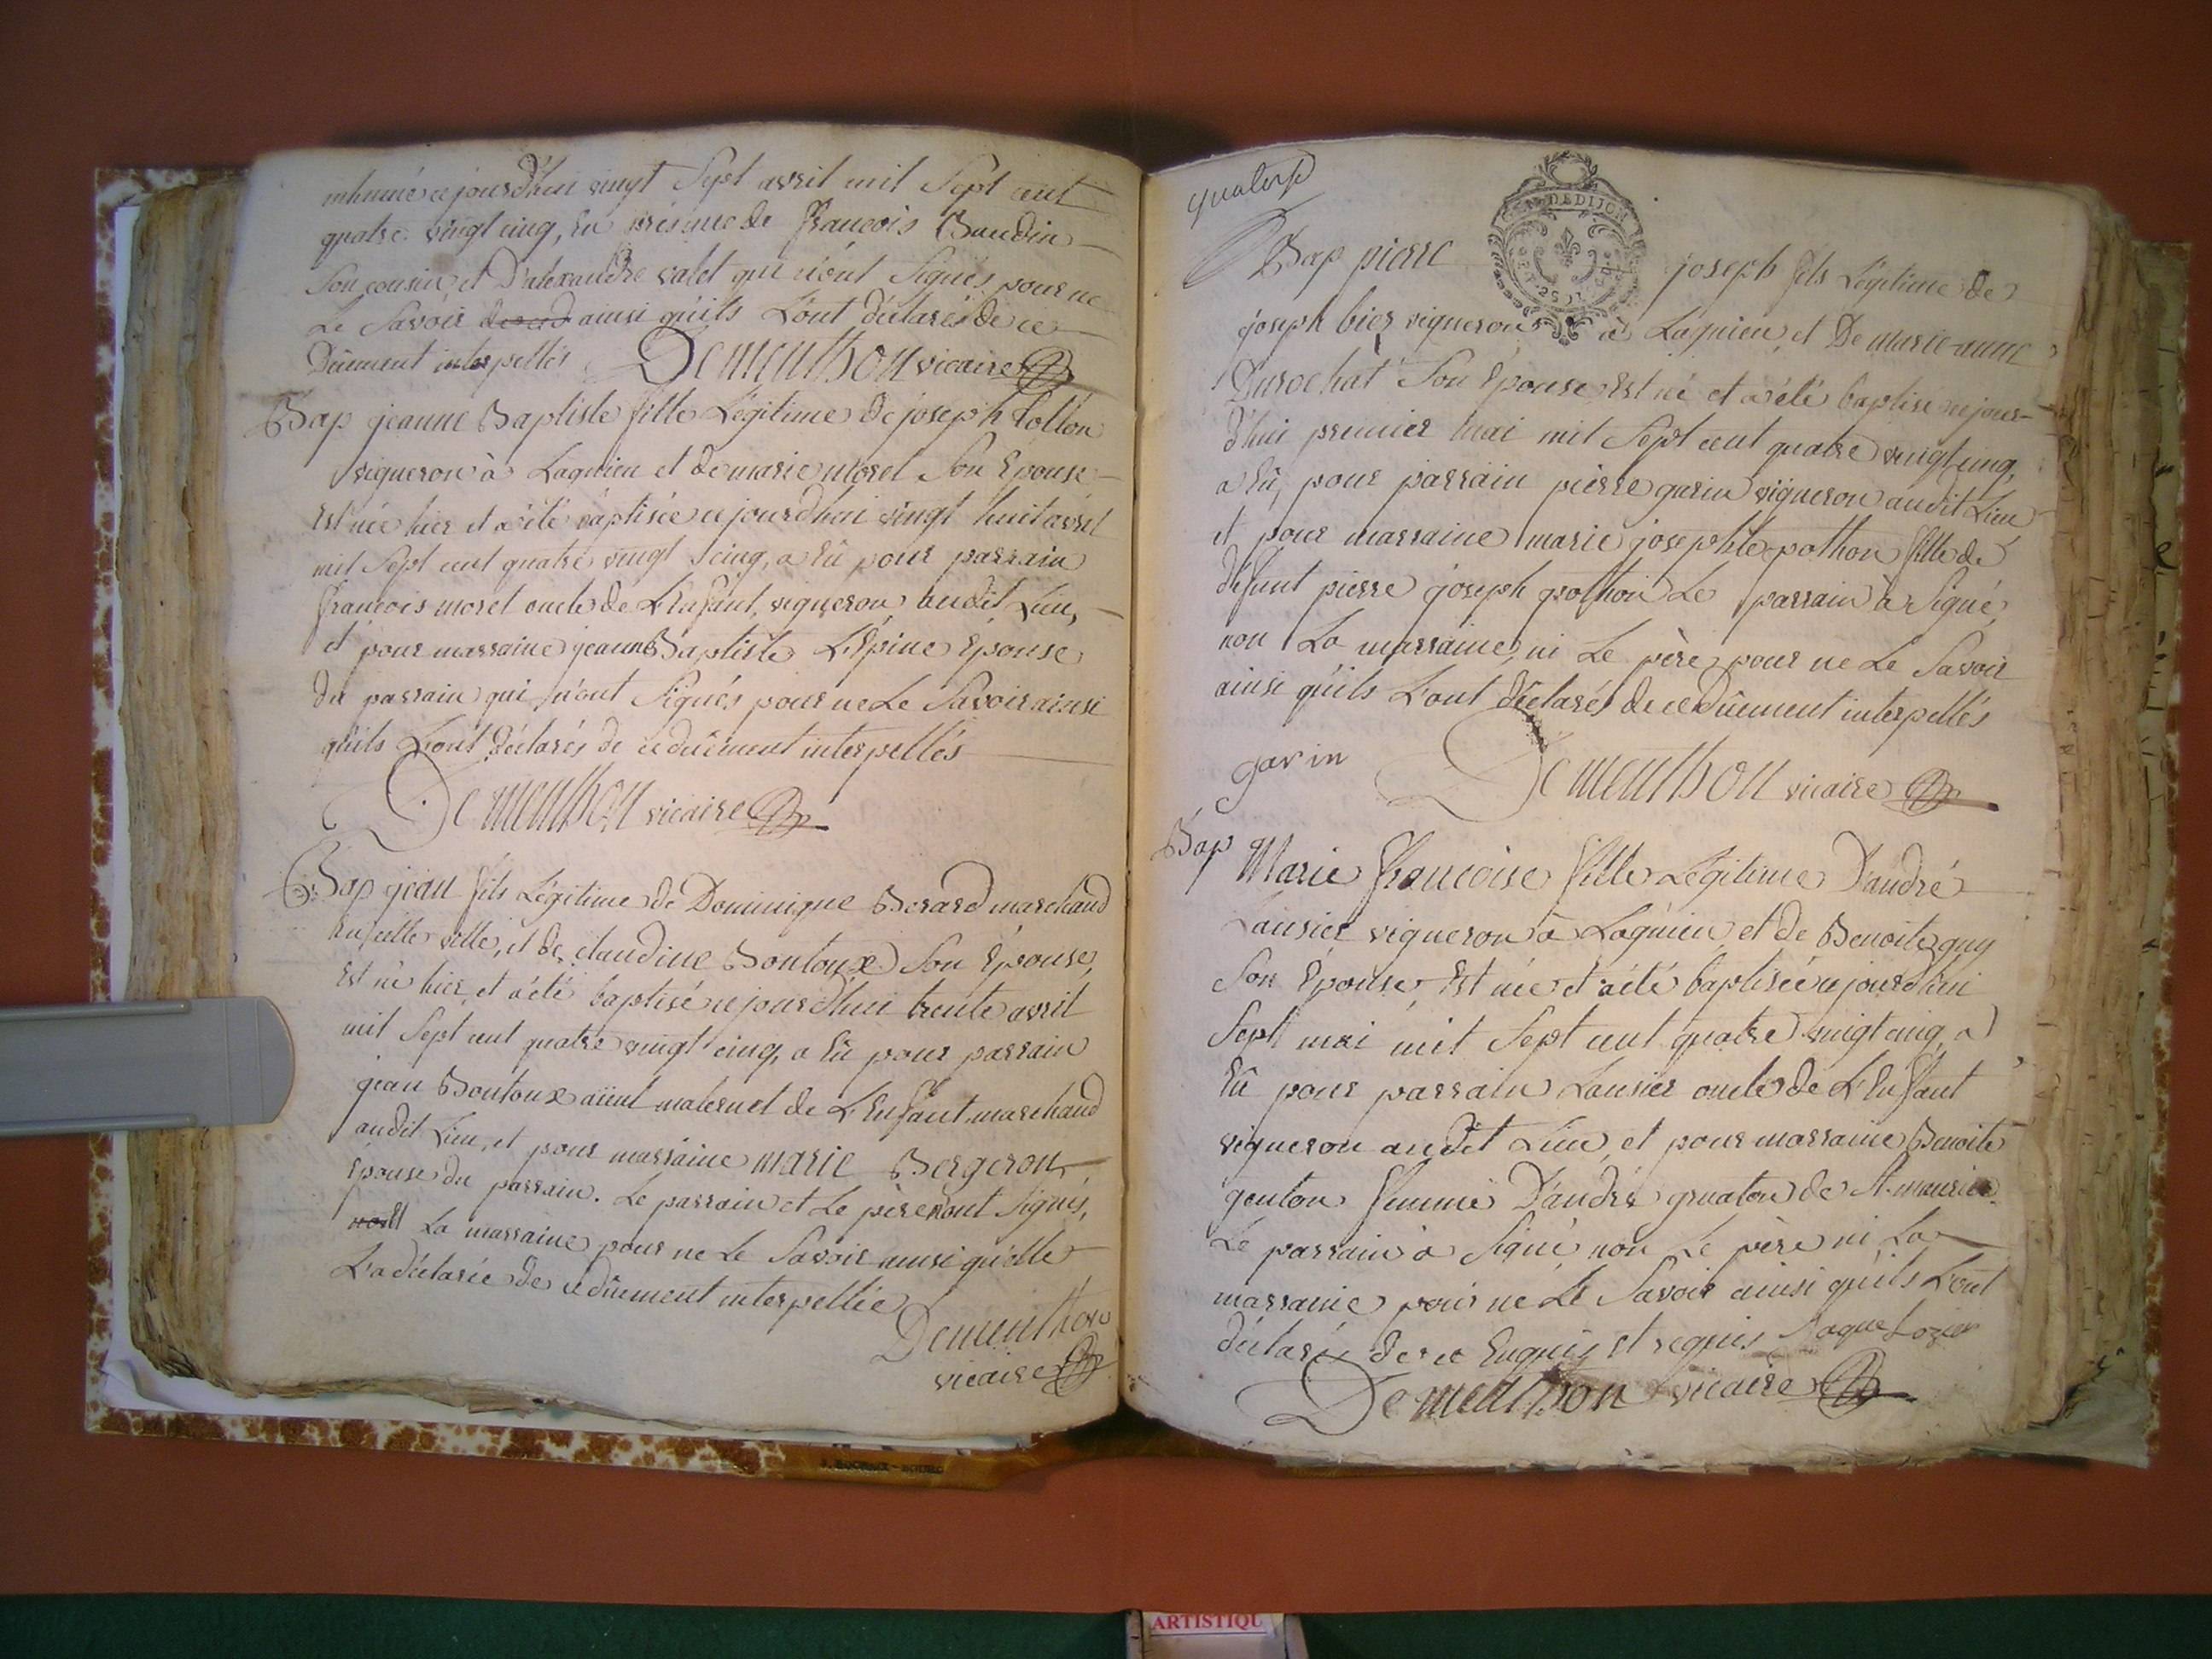 inhumé cejourd'hui vingt Sept avril mil Sept cent
quatre vingt cinq, En présence de françois Baudin
Son cousin et D'alexandre valet qui n'ont Signés pour ne
Le Savoir ainsi qu'ils L'ont déclarés de ce
Dûement interpellés Dementhon vicaire
Bap jeanne Baptiste fille Légitime de joseph
vigneron à Lagnieu et de marie moret Son Epouse
Est née hier et a été baptisée cejourd'hui vingt huit avril
mil Sept cent quatre vingt cinq, a Eû pour parrain
françois moret oncle de L'Enfant, vigneron audit Lieu,
et pour marraine jeanne Baptiste L'Epine Epouse
du parrain qui n'ont Signés pour ne Le Savoir ainsi
qu'ils L'ont déclarés de ce dûement interpellés
Dementhon vicaire
Bap jean fils Légitime de Dominique Berard marchand
En cette ville, et de claudine Bontoux Son Epouse,
Est né hier et a été baptisé cejourd'hui trente avril
mil Sept cent quatre vingt cinq, a Eû pour parrain
jean Bontoux aieul maternel de L'Enfant, marchand
audit Lieu, et pour marraine marie Bergeron
Epouse du parrain. Le parrain et Le père ont Signés,
La marraine pour ne Le Savoir ainsi qu'elle
L'a déclarée de ce dûement interpellée
Dementhon
vicaire
quatorze
GEN. DE DIJON
Bap pierre joseph fils Légitime de
joseph bier vigneron à Lagnieu, et De marie-anne
Durochat Son Epouse Est né et a été baptisé cejour-
d'hui premier mai mil Sept cent quatre vingt cinq,
a Eû, pour parrain pierre garin vigneron audit Lieu
et pour marraine marie josephte pothon fille de
défunt pierre joseph pothon Le parrain à Signé,
non La marraine, ni Le père pour ne Le Savoir
ainsi qu'ils L'ont déclarés de ce dûement interpellés
garin Dementhon vicaire
Bap Marie françoise fille Légitime D'andré
Lausier vigneron à Lagnieu, et de Benoite guy
Son Epouse, Est née et a été baptisée cejourd'hui
Sept mai mil Sept cent quatre vingt cinq, a
Eû pour parrain Lausier oncle de L'Enfant
vigneron audit Lieu, et pour marraine Benoite
genton femme D'andré de St. maurice
Le parrain a Signé non Le père ni La
marraine pour ne Le Savoir ainsi qu'ils L'ont
déclaré de ce Enquis et requis
Dementhon vicaire
ARTISTIQU